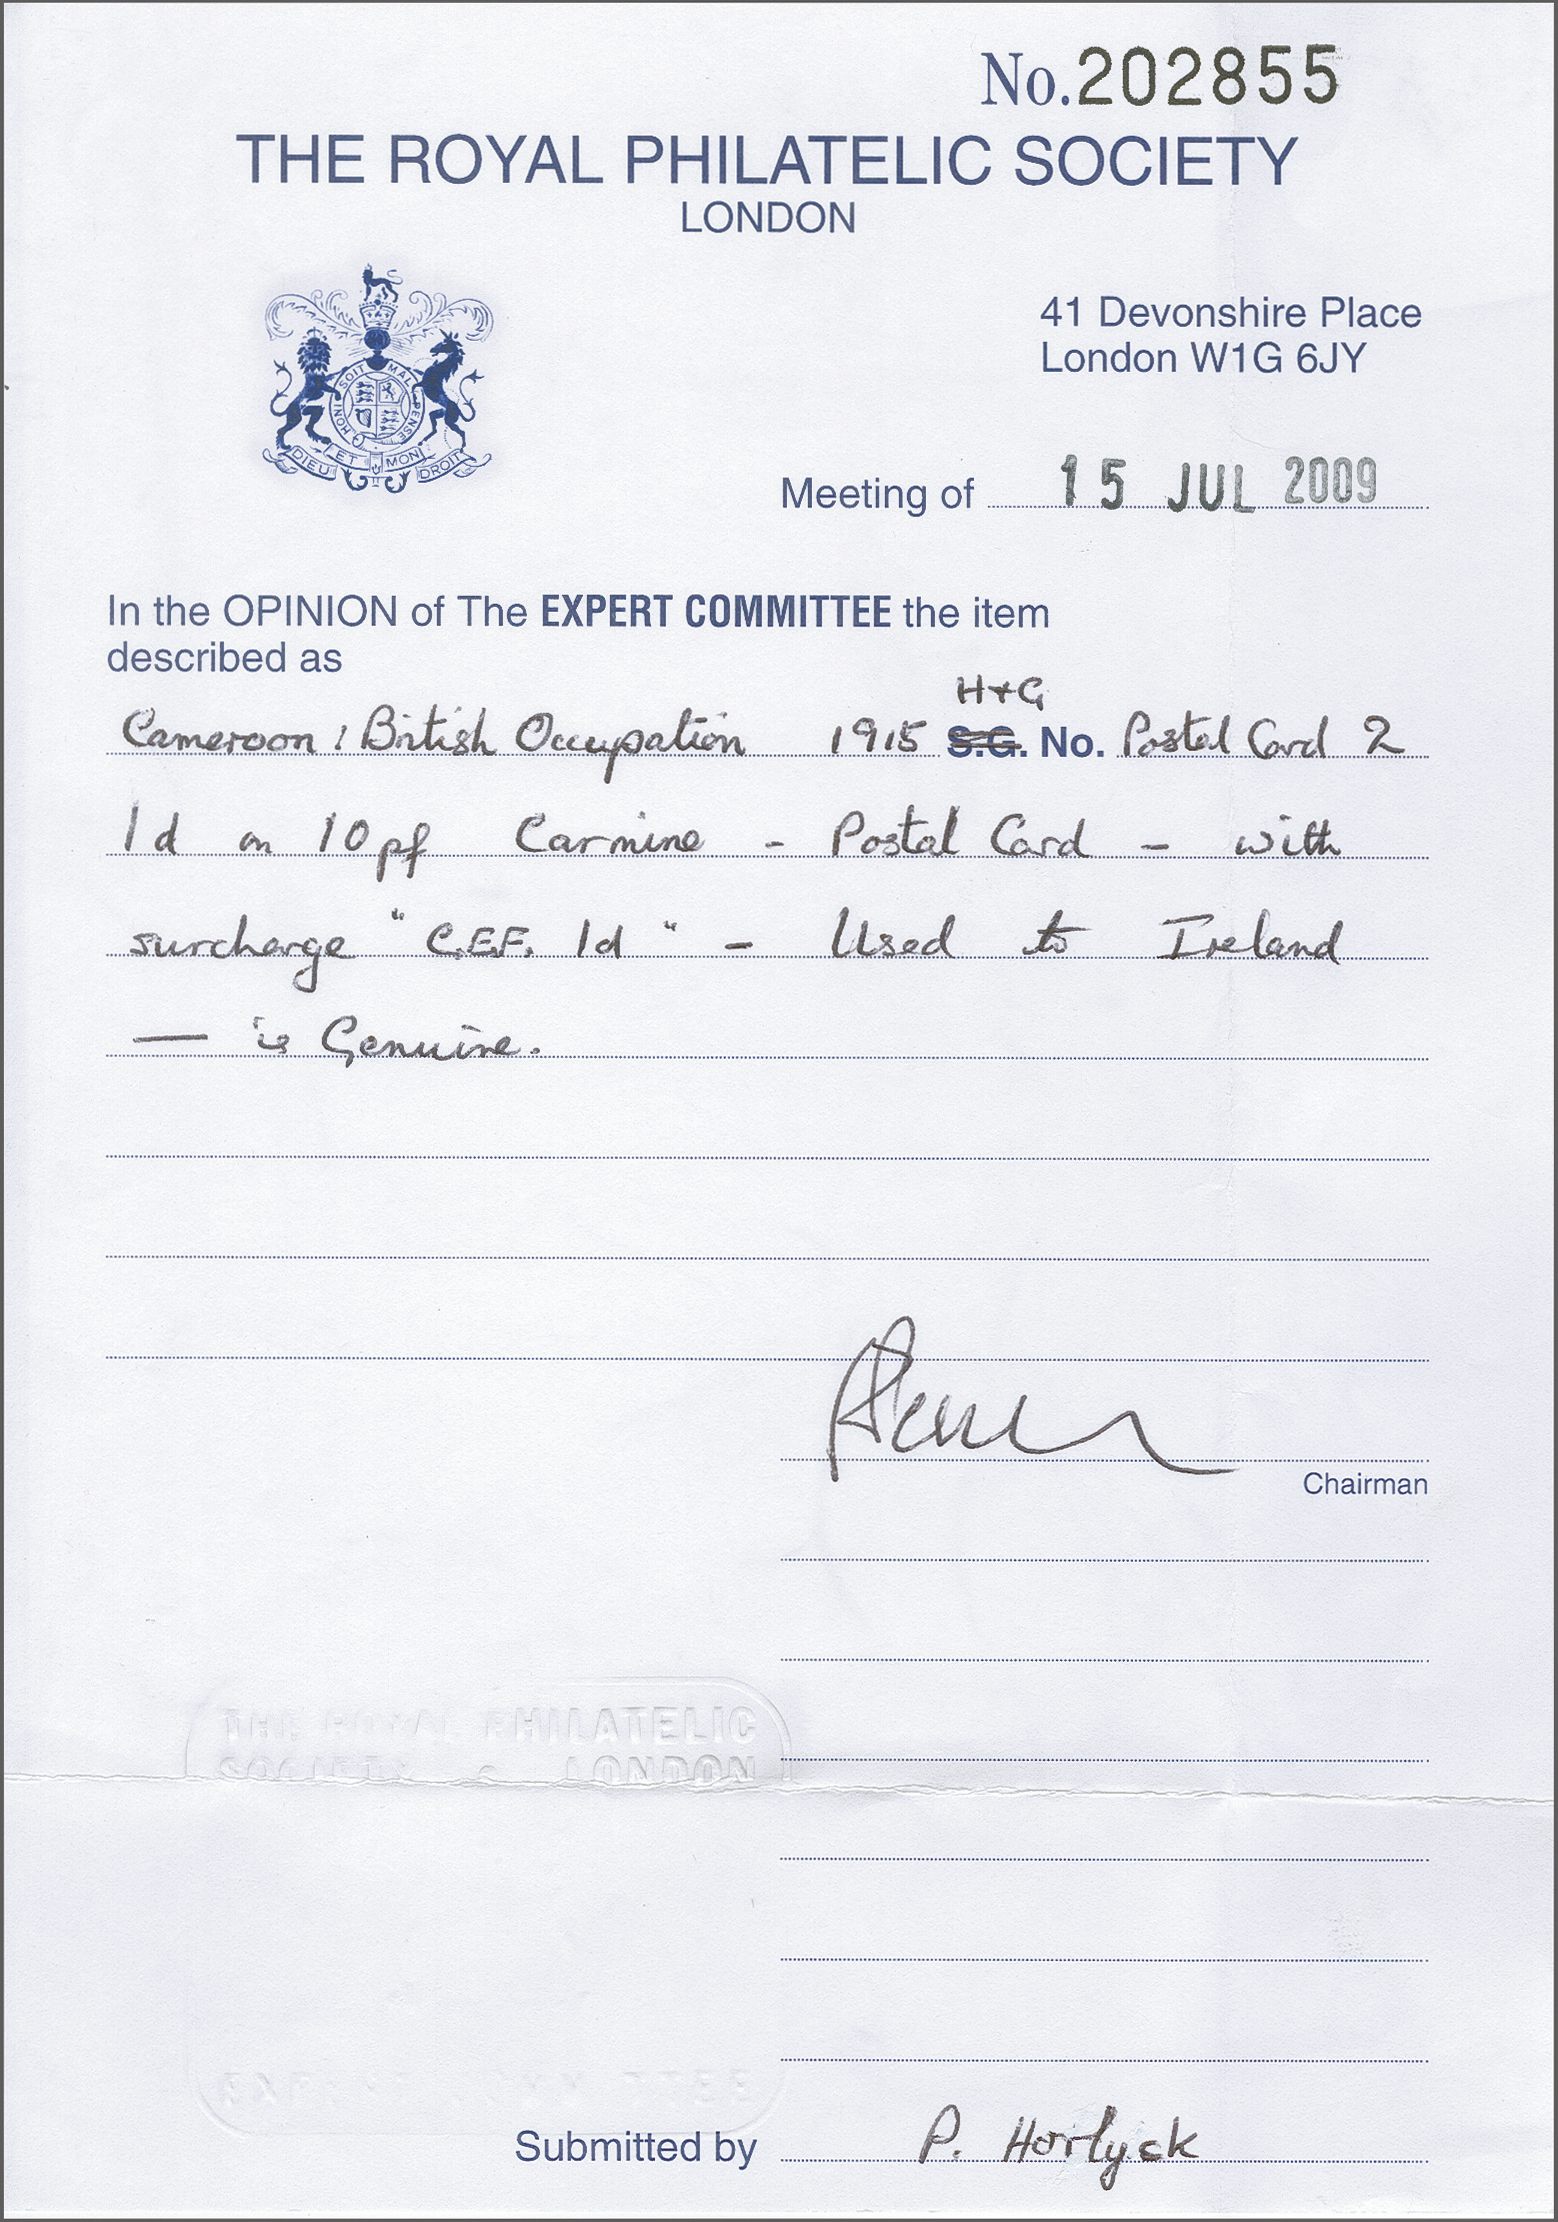 No.202855
THE ROYAL PHILATELIC SOCIETY
LONDON
HONI SOIT MAL PENSE
DIEU ET MON DROIT
41 Devonshire Place
London W1G 6JY
Meeting of 15 JUL 2009
In the OPINION of The EXPERT COMMITTEE the item
described as
H+G
Cameroon : British Occupation 1915 S.G. No. Postal Card 2
1d on 10pf Carmine - Postal Card - with
surcharge "C.E.F. 1d" - Used to Ireland
— is Genuine.
Chairman
THE ROYAL PHILATELIC
SOCIETY LONDON
Submitted by P. Horlyck